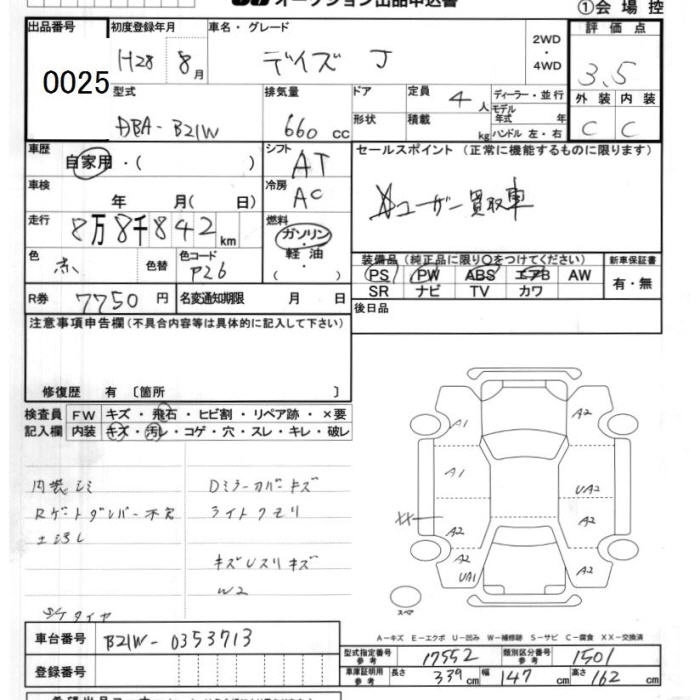 オークション出品申込書
①会場控
出品番号 初度登録年月 車名・グレード 評価点
0025 H28 8月 デイズ J 2WD・4WD 3.5
型式 排気量 ドア 定員 4人 ディーラー・並行 外装 内装
モデル年式 年
DBA-B21W 660cc 形状 積載 kg ハンドル 左・右 C C
車歴 自家用・( ) シフト AT セールスポイント (正常に機能するものに限ります)
車検 年 月( 日) 冷房 AC ユーザー買取車
走行 8万8千842km 燃料 ガソリン・軽油・( )
色 赤 色替 色コード P26 装備品 (純正品に限り○をつけてください) 新車保証書
PS PW ABS エアB AW 有・無
SR ナビ TV カワ
R券 7750円 名変通知期限 月 日 後日品
注意事項申告欄 (不具合内容等は具体的に記入して下さい)
修復歴 有 〔箇所 〕
検査員 FW キズ・飛石・ヒビ割・リペア跡・×要
記入欄 内装 キズ・汚レ・コゲ・穴・スレ・キレ・破レ
内装シミ Dミラーカバーキズ
Rゲートダンパー不良 ライトクモリ
キズUスリキズ
W2
S/Cタイヤ
A1 A2
A1 UA2
XX A2 A2
A2 UA1 A2
スペア
A－キズ E－エクボ U－凹み W－補修跡 S－サビ C－腐食 XX－交換済
車台番号 B21W-0353713
型式指定番号 参考 17552 類別区分番号 参考 1501
登録番号 車庫証明用 参考 長さ 339cm 幅 147cm 高さ 162cm
希望出品コーナー